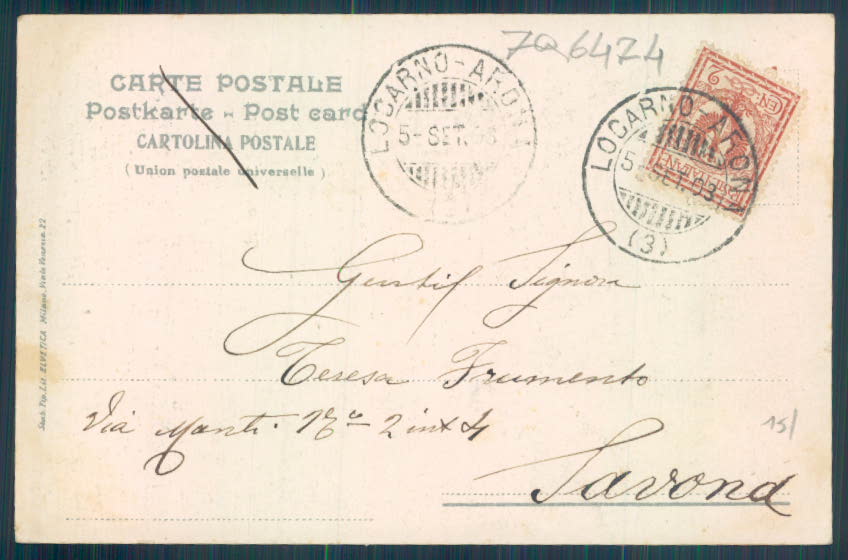 7Q6474
CARTE POSTALE
Postkarte - Post card
CARTOLINA POSTALE
( Union postale universelle )
LOCARNO-ARON
5-SET.03
LOCARNO-ARON
5-SET.03
(3)
2
EN
Gentil Signora
Teresa Frumento
Via Monti. No 2 int 4
15/
Savona
Stab. Tip. Lit. ELVETICA Milano, Viale Venezia, 22